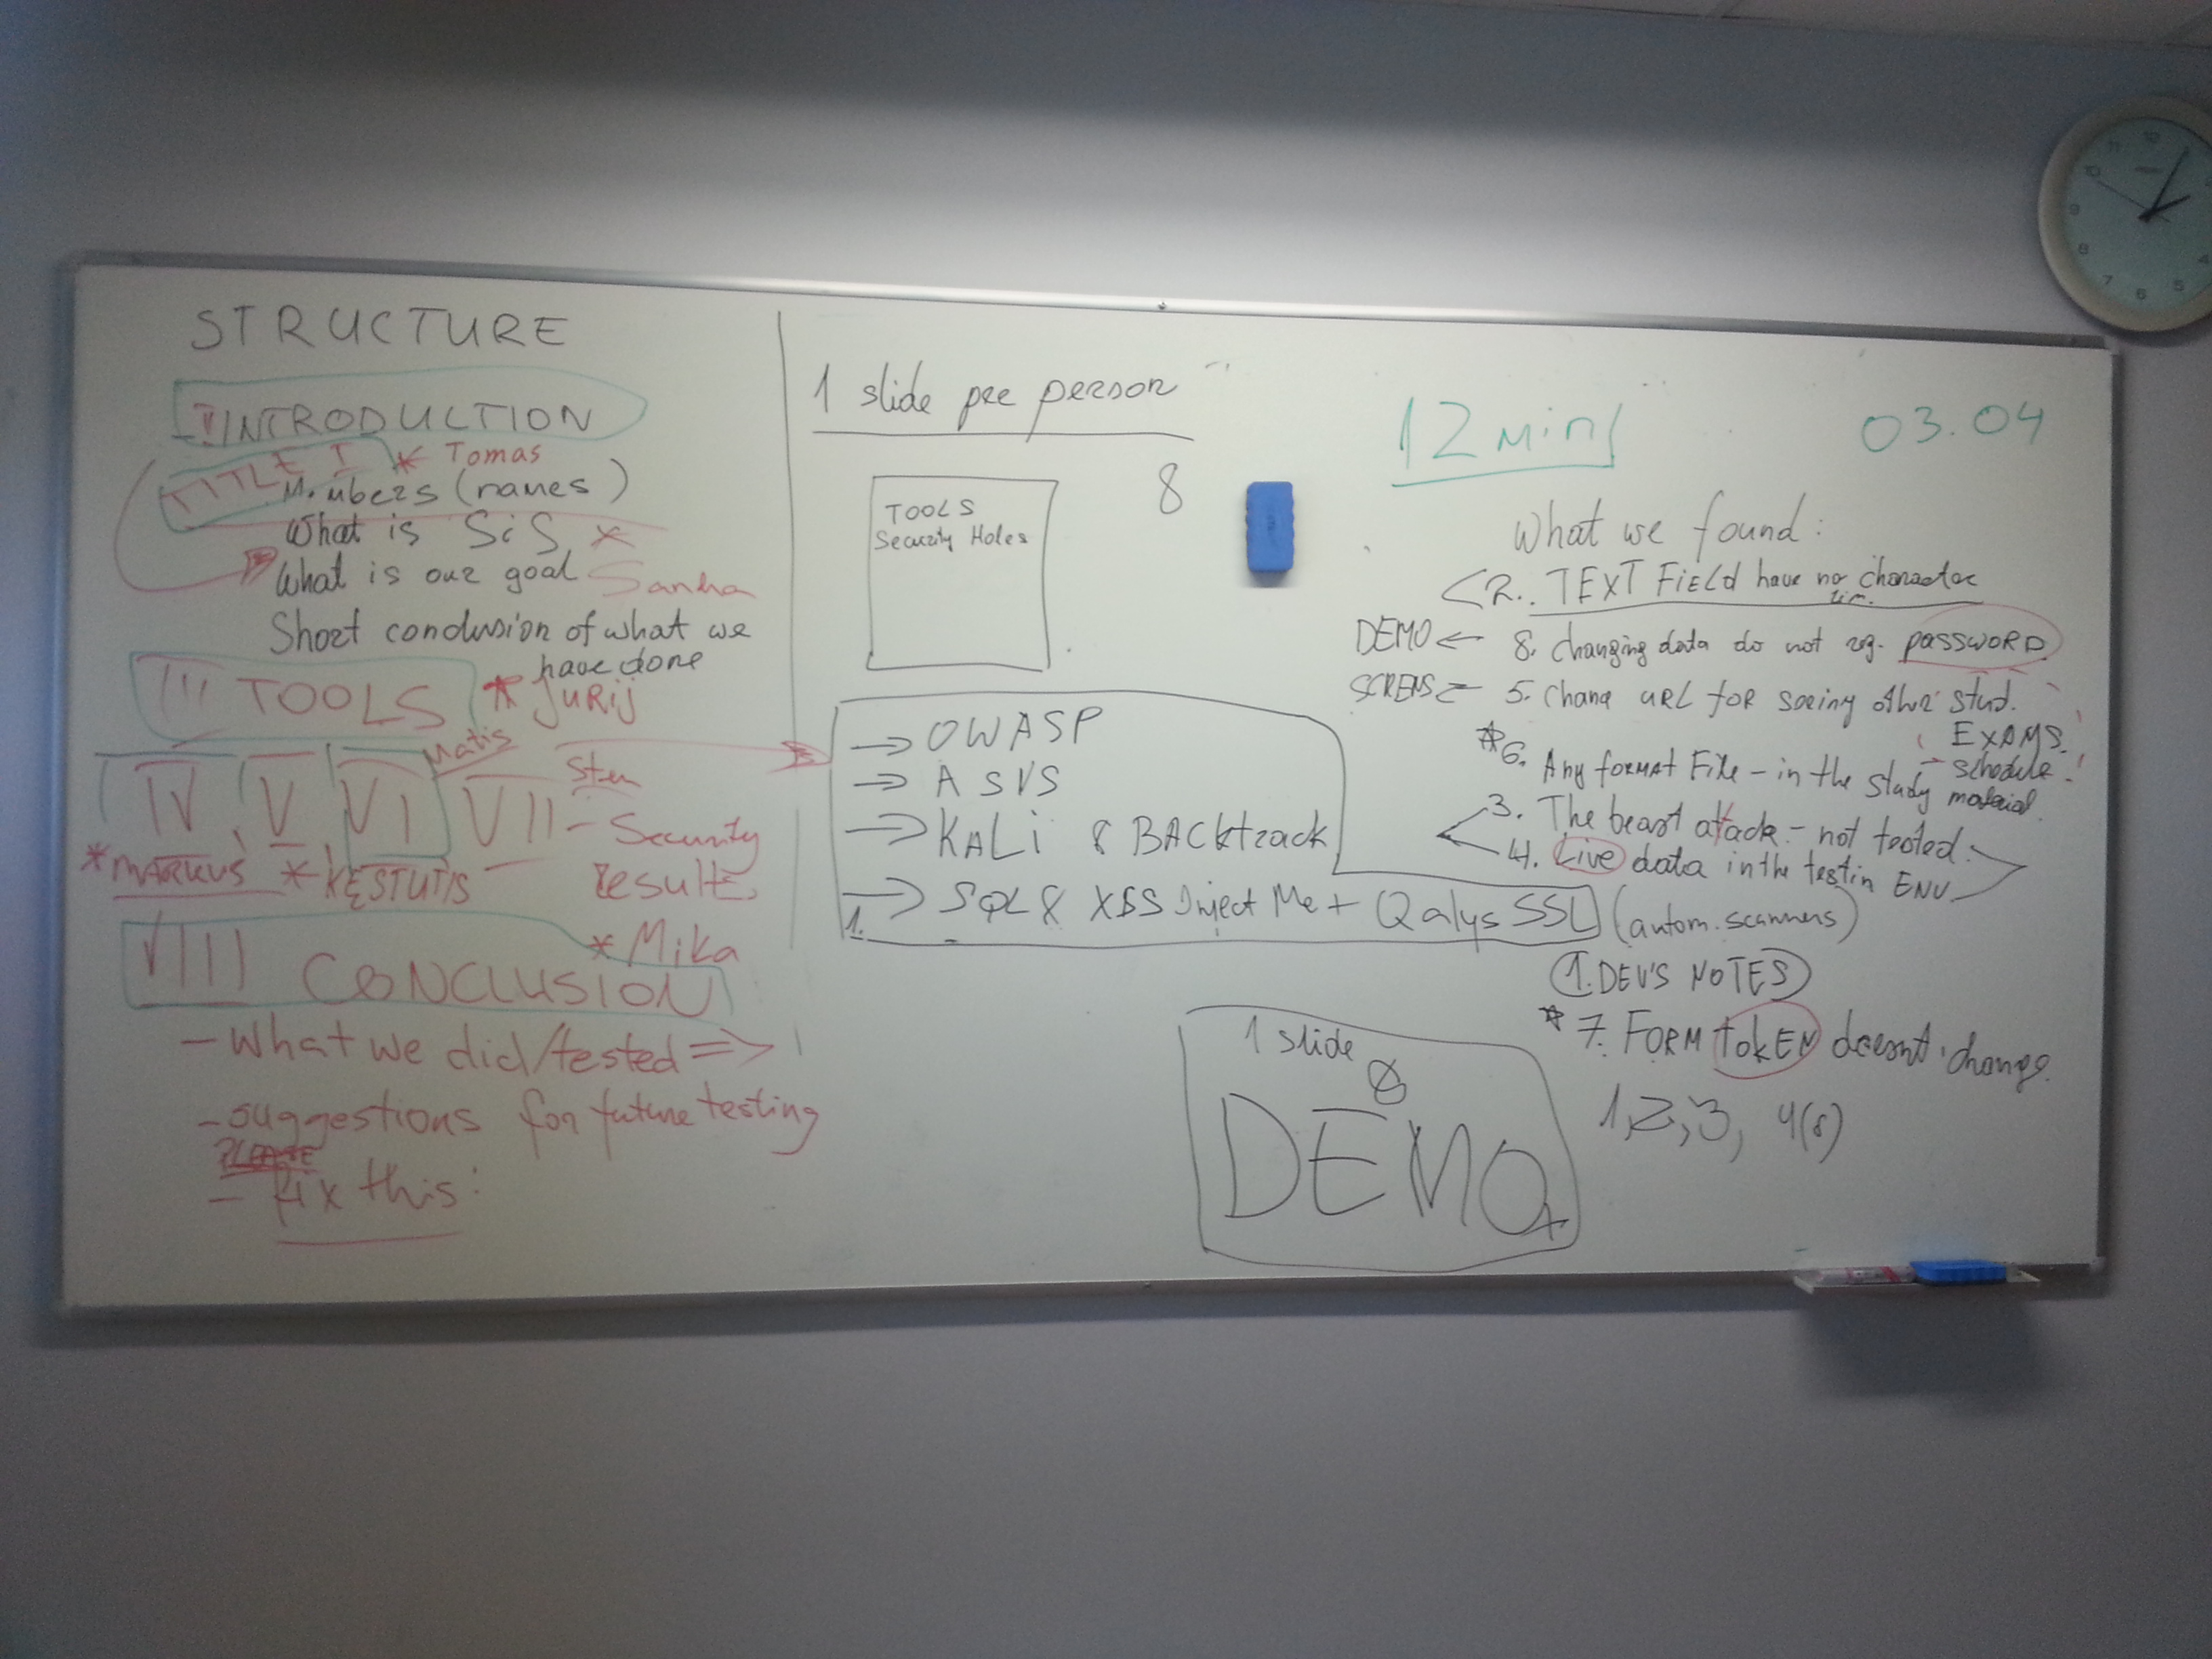 STRUCTURE
- II INTRODUCTION
TITLE I * Tomas
Members (names)
What is SiS *
What is our goal Sandra
Short conclusion of what we
have done
III TOOLS * JURIJ
Matis
IV V VI VII Sten
- Security
results
* MARKUS * KĘSTUTIS
VIII CONCLUSION * Mika
- What we did/tested =>
- suggestions for future testing
PLEASE
- fix this:
1 slide pre person
8
TOOLS
Security Holes
→ OWASP
→ ASVS
→ KALi & BACKtrack
→ SQL & XSS Inject Me + Qalys SSL (autom. scanners)
1.
1 slide
8
DEMO
12 min
03.04
What we found:
2. TEXT FiELd have no character
lim.
DEMO ← 8. Changing data do not rq. PASSWORD
SCRENS ← 5. Chang URL FOR seeing other stud.
EXAMS
- schedule
* 6. Any FORMAT File - in the study material
3. The beast attack - not tested.
4. Live data in the testin ENV
1. DEV'S NOTES
* 7. FORM tOKEN doesnt change
1,2,3, 4(8)
12
11
10
9
8
7
6
5
4